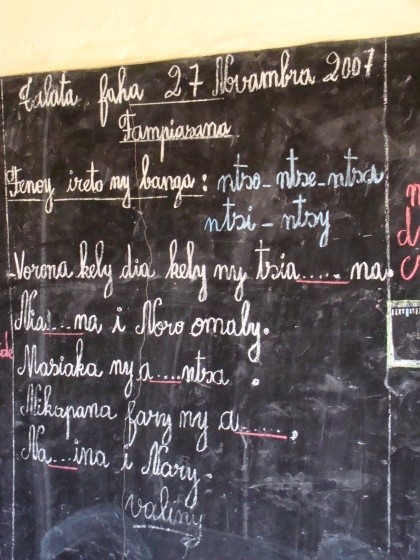 Talata faha 27 Novambra 2007
Fampiasana
Fenoy ireto ny banga : ntso - ntse - ntsa
ntsi - ntsy
Vorona kely dia kely ny tsia...... na.
Nia....na i Noro omaly.
Masiaka ny a....ntsa .
Mikapana fary ny a......
Na...ina i Nary.
valiny